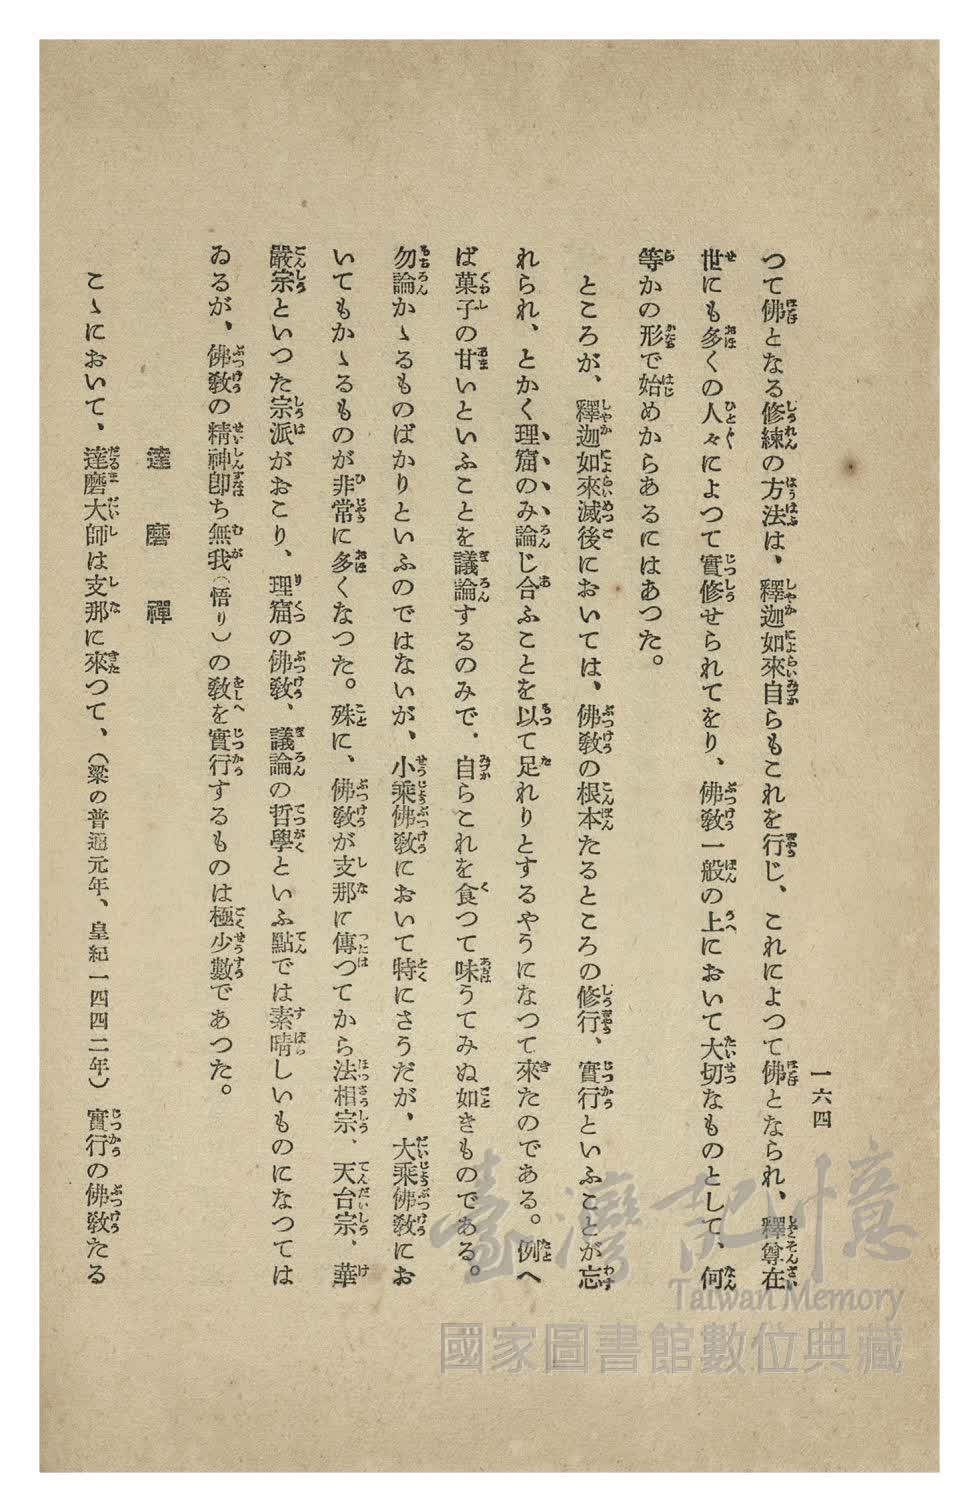 一六四
つて佛となる修練の方法は、釋迦如來自らもこれを行じ、これによつて佛となられ、釋尊在
世にも多くの人々によつて實修せられてをり、佛教一般の上において大切なものとして、何
等かの形で始めからあるにはあつた。
ところが、釋迦如來滅後においては、佛教の根本たるところの修行、實行といふことが忘
れられ、とかく理窟のみ論じ合ふことを以て足れりとするやうになつて來たのである。例へ
ば菓子の甘いといふことを議論するのみで、自らこれを食つて味うてみぬ如きものである。
勿論かゝるものばかりといふのではないが、小乘佛教において特にさうだが、大乘佛教にお
いてもかゝるものが非常に多くなつた。殊に、佛教が支那に傳つてから法相宗、天台宗、華
嚴宗といつた宗派がおこり、理窟の佛教、議論の哲學といふ點では素晴しいものになつては
ゐるが、佛教の精神卽ち無我（悟り）の教を實行するものは極少數であつた。
達磨禪
こゝにおいて、達磨大師は支那に來つて、（梁の普通元年、皇紀一四四二年）實行の佛教たる
臺灣記憶
Taiwan Memory
國家圖書館數位典藏